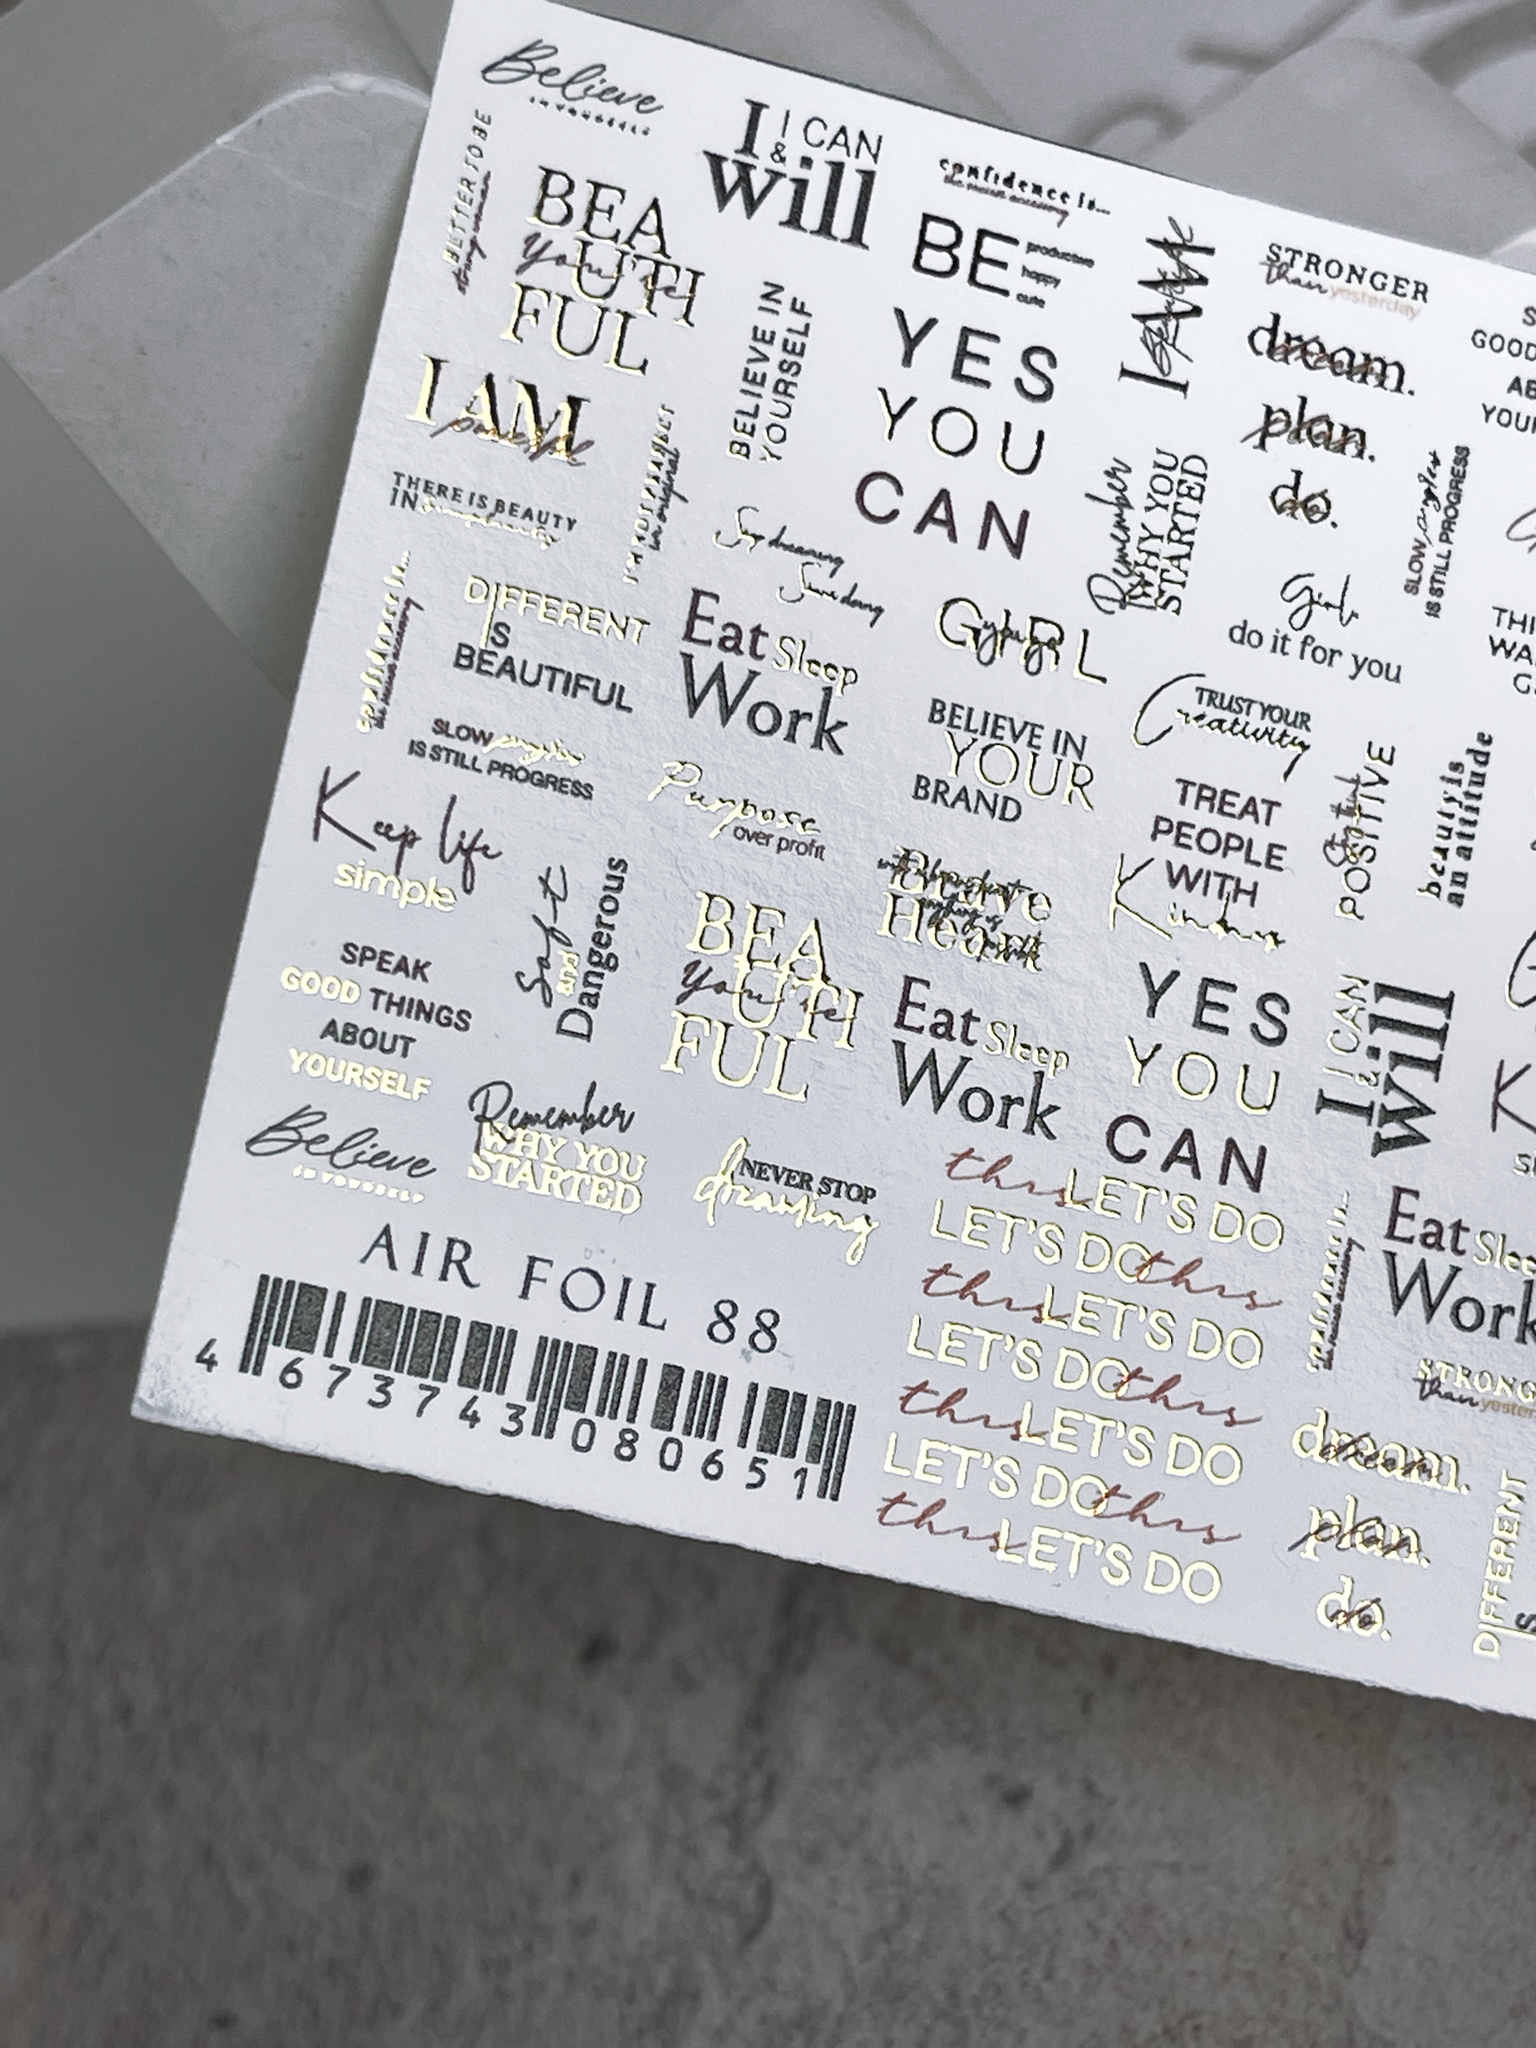 Believe
IN YOURSELF
BETTER TO BE
strong woman
BEA
You're
UTI
FUL
I AM
powerful
THERE IS BEAUTY
IN simplicity
I CAN
I &
will
BELIEVE IN
YOURSELF
in original
Stop dreaming
Start doing
confidence is...
BE
productive
happy
cute
YES
YOU
CAN
I AM
beautiful
Remember
WHY YOU
STARTED
STRONGER
than yesterday
dream.
plan.
do.
SLOW progress
IS STILL PROGRESS
GOOD
confidence is...
DIFFERENT
IS
BEAUTIFUL
Eat Sleep
Work
GIRL
Girl
do it for you
SLOW progress
IS STILL PROGRESS
Purpose
over profit
BELIEVE IN
YOUR
BRAND
TRUST YOUR
Creativity
POSITIVE
beauty is
an attitude
Keep life
simple
Soft
and
Dangerous
Brave
Heart
TREAT
PEOPLE
WITH
Kindness
SPEAK
GOOD THINGS
ABOUT
YOURSELF
BEA
You're
UTI
FUL
Eat Sleep
Work
YES
YOU
CAN
I CAN
I &
will
Believe
IN YOURSELF
Remember
WHY YOU
STARTED
NEVER STOP
dreaming
this LET'S DO
LET'S DO this
this LET'S DO
LET'S DO this
this LET'S DO
LET'S DO this
this LET'S DO
confidence is...
Eat Sleep
Work
than yester
dream.
plan.
do.
DIFFERENT
AIR FOIL 88
4 673743 080651